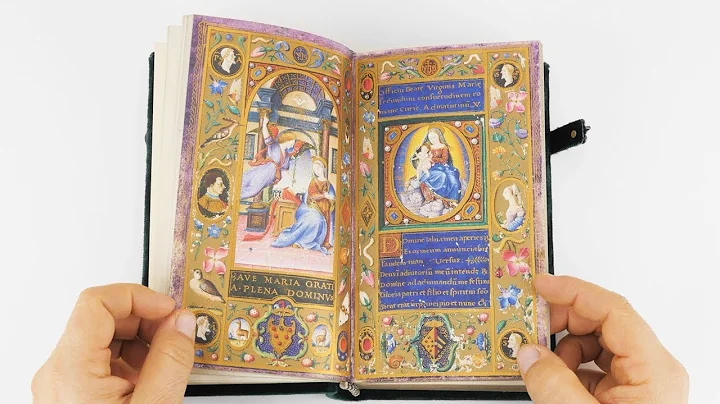 AVE MARIA GRATI
A·PLENA DOMINVS
Officiu Beate Virginis Marie
secundum consuetudinem ro
mane Curie Ad matutinu V
Domine labia mea aperies
Et os meum annunciabit
laudem tuam Versus
Deus in adiutoriu meu intende
Domine ad adiuvandu me festina
Gloria patri et filio et spiritui
Sicut erat in principio et nunc